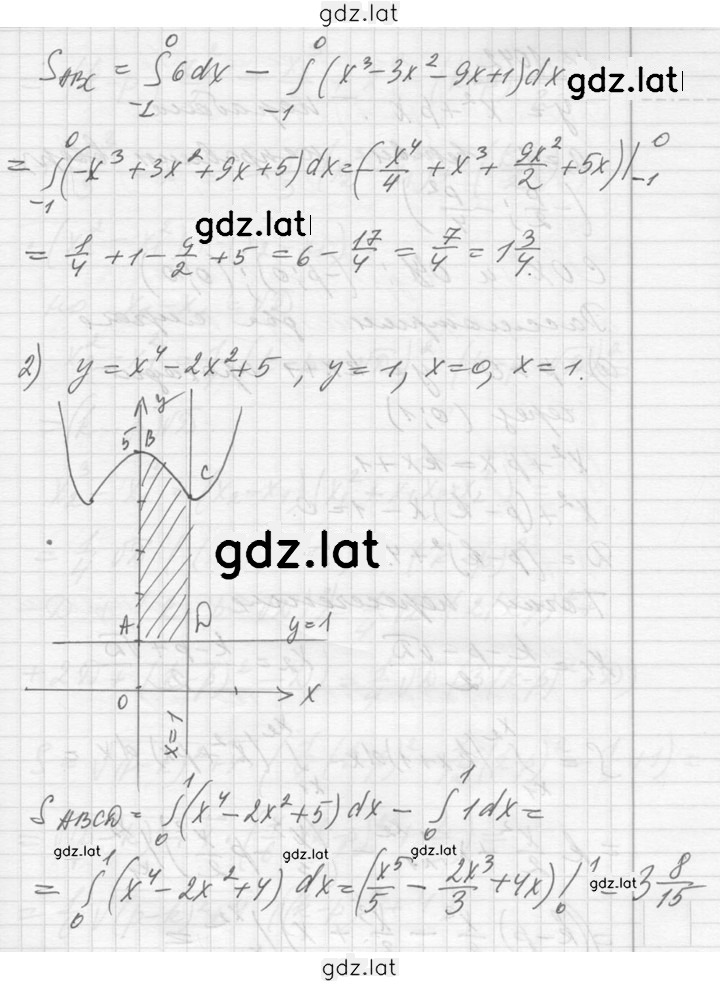 gdz.lat
S_ABC = ∫₋₁⁰ 6dx − ∫₋₁⁰ (x³−3x²−9x+1)dx
gdz.lat
= ∫₋₁⁰ (−x³+3x²+9x+5)dx = (−x⁴/4 + x³ + 9x²/2 + 5x)|₋₁⁰
gdz.lat
= 1/4 + 1 − 9/2 + 5 = 6 − 17/4 = 7/4 = 1 3/4.
2) y = x⁴−2x²+5, y=1, x=0, x=1.
y
5 B
C
gdz.lat
A D y=1
0 x
x=1
S_ABCD = ∫₀¹ (x⁴−2x²+5)dx − ∫₀¹ 1dx =
gdz.lat gdz.lat gdz.lat
= ∫₀¹ (x⁴−2x²+4) dx = (x⁵/5 − 2x³/3 + 4x)|₀¹ = 3 8/15
gdz.lat
gdz.lat